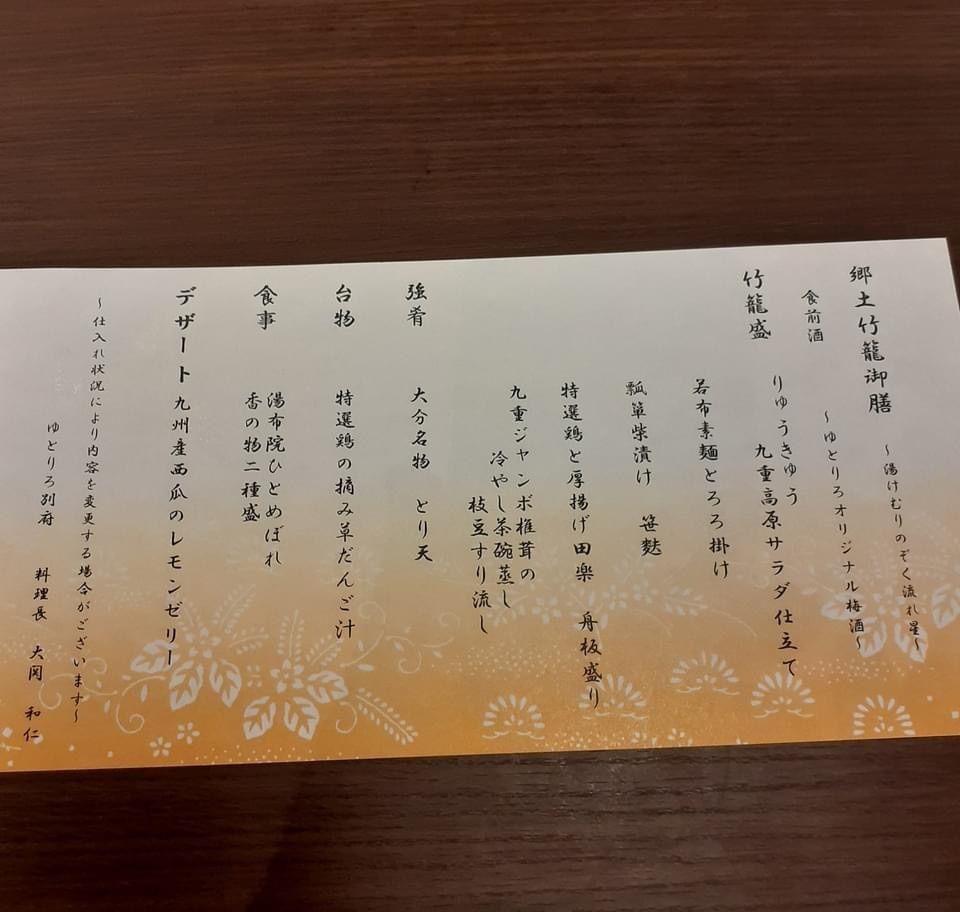 郷土竹籠御膳 ~湯けむりのぞく流れ星~
食前酒 ~ゆとりろオリジナル梅酒~
竹籠盛 りゅうきゅう
九重高原サラダ仕立て
若布素麺とろろ掛け
瓢箪柴漬け 笹麩
特選鶏と厚揚げ田楽 舟板盛り
九重ジャンボ椎茸の
冷やし茶碗蒸し
枝豆すり流し
強肴 大分名物 とり天
台物 特選鶏の摘み草だんご汁
食事 湯布院ひとめぼれ
香の物二種盛
デザート 九州産西瓜のレモンゼリー
~仕入れ状況により内容を変更する場合がございます~
ゆとりろ別府 料理長 大関 和仁